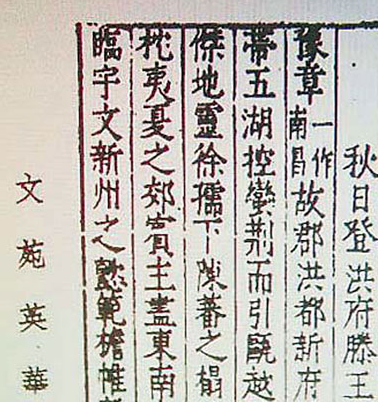 秋日登洪府滕王
豫章一作南昌故郡洪都新府
帶五湖控蠻荆而引甌越
傑地靈徐孺下陳蕃之榻
枕夷夏之郊賓主盡東南
臨宇文新州之懿範檐帷
文苑英華